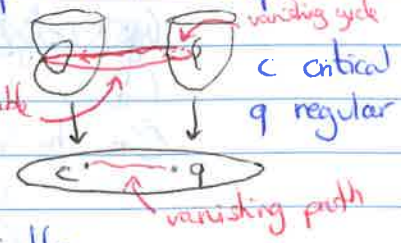 vanishing cycle
c critical
q regular
c q
vanishing path